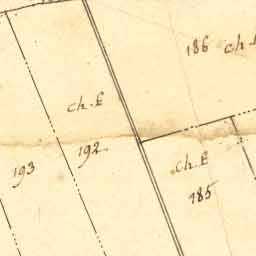 186 ch.E
ch.E
192.
193
ch E
185